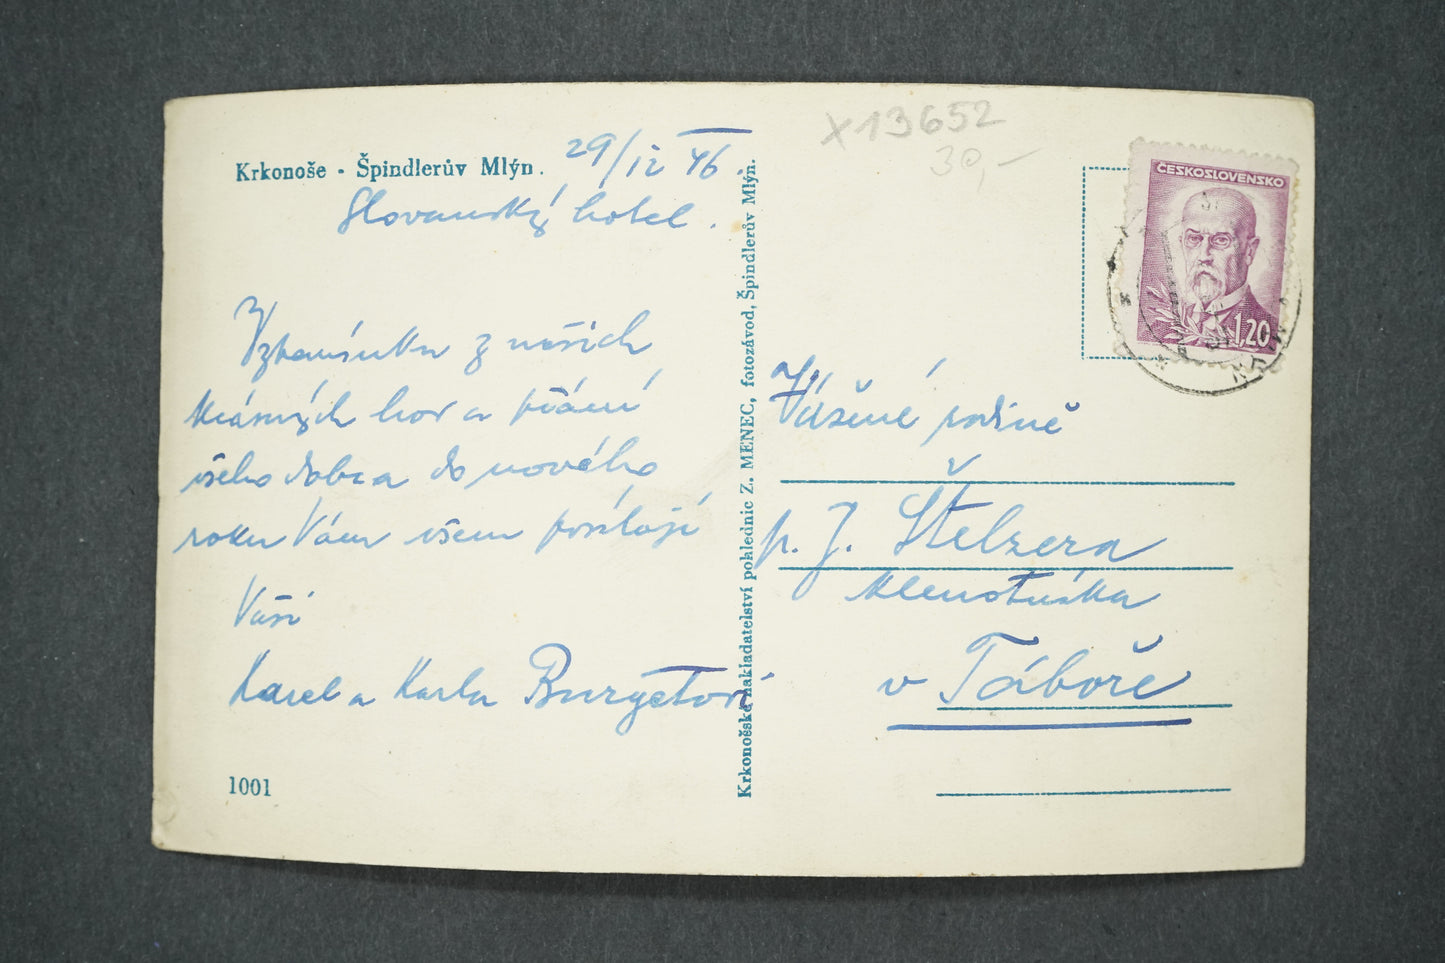 Krkonoše - Špindlerův Mlýn. 29/12 46.
Slovanský hotel.
Vzpomínku z našich
krásných hor a přání
všeho dobra do nového
roku Vám všem posílají
Vaši
Karel a Karla Burgetovi
1001
Krkonošské nakladatelství pohlednic Z. MENEC, fotozávod, Špindlerův Mlýn.
X13652
30,-
ČESKOSLOVENSKO
1,20
Vážené rodině
p. J. Štelzera
v Táboře